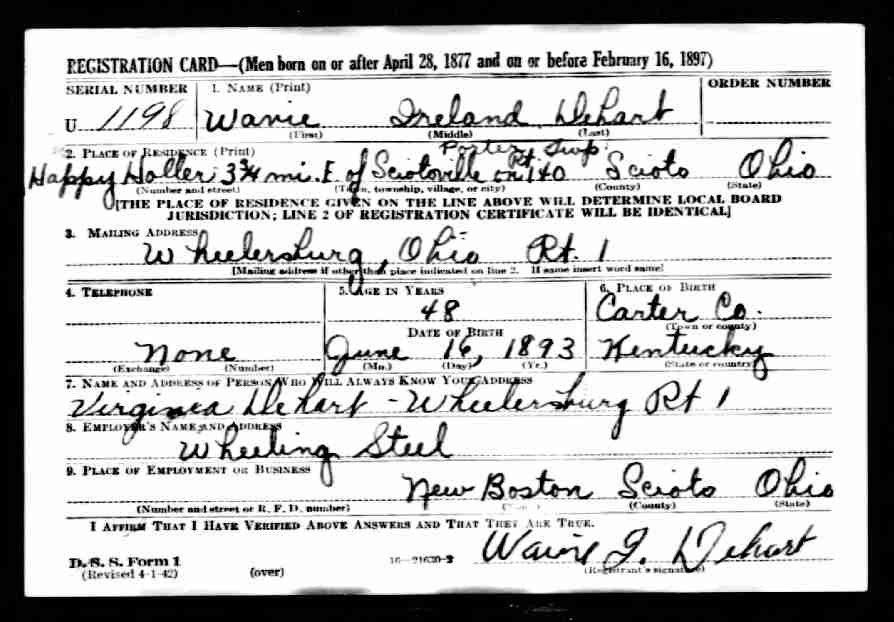 REGISTRATION CARD—(Men born on or after April 28, 1877 and on or before February 16, 1897)
SERIAL NUMBER 1. NAME (Print) ORDER NUMBER
U 1198 Wavie Ireland DeHart
(First) (Middle) (Last)
2. PLACE OF RESIDENCE (Print) Porter Twp.
Happy Holler 3 3/4 mi. E. of Sciotoville on Rt. 140 Scioto Ohio
(Number and street) (Town, township, village, or city) (County) (State)
[THE PLACE OF RESIDENCE GIVEN ON THE LINE ABOVE WILL DETERMINE LOCAL BOARD
JURISDICTION; LINE 2 OF REGISTRATION CERTIFICATE WILL BE IDENTICAL]
3. MAILING ADDRESS
Wheelersburg, Ohio Rt. 1
[Mailing address if other than place indicated on line 2. If same insert word same]
4. TELEPHONE 5. AGE IN YEARS 6. PLACE OF BIRTH
48 Carter Co.
DATE OF BIRTH (Town or county)
None June 16, 1893 Kentucky
(Exchange) (Number) (Mo.) (Day) (Yr.) (State or country)
7. NAME AND ADDRESS OF PERSON WHO WILL ALWAYS KNOW YOUR ADDRESS
Virginia DeHart - Wheelersburg Rt 1
8. EMPLOYER'S NAME AND ADDRESS
Wheeling Steel
9. PLACE OF EMPLOYMENT OR BUSINESS
New Boston Scioto Ohio
(Number and street or R. F. D. number) (Town) (County) (State)
I AFFIRM THAT I HAVE VERIFIED ABOVE ANSWERS AND THAT THEY ARE TRUE.
D. S. S. Form 1 16—21630-2 Wavie I. DeHart
(Revised 4-1-42) (over) (Registrant's signature)